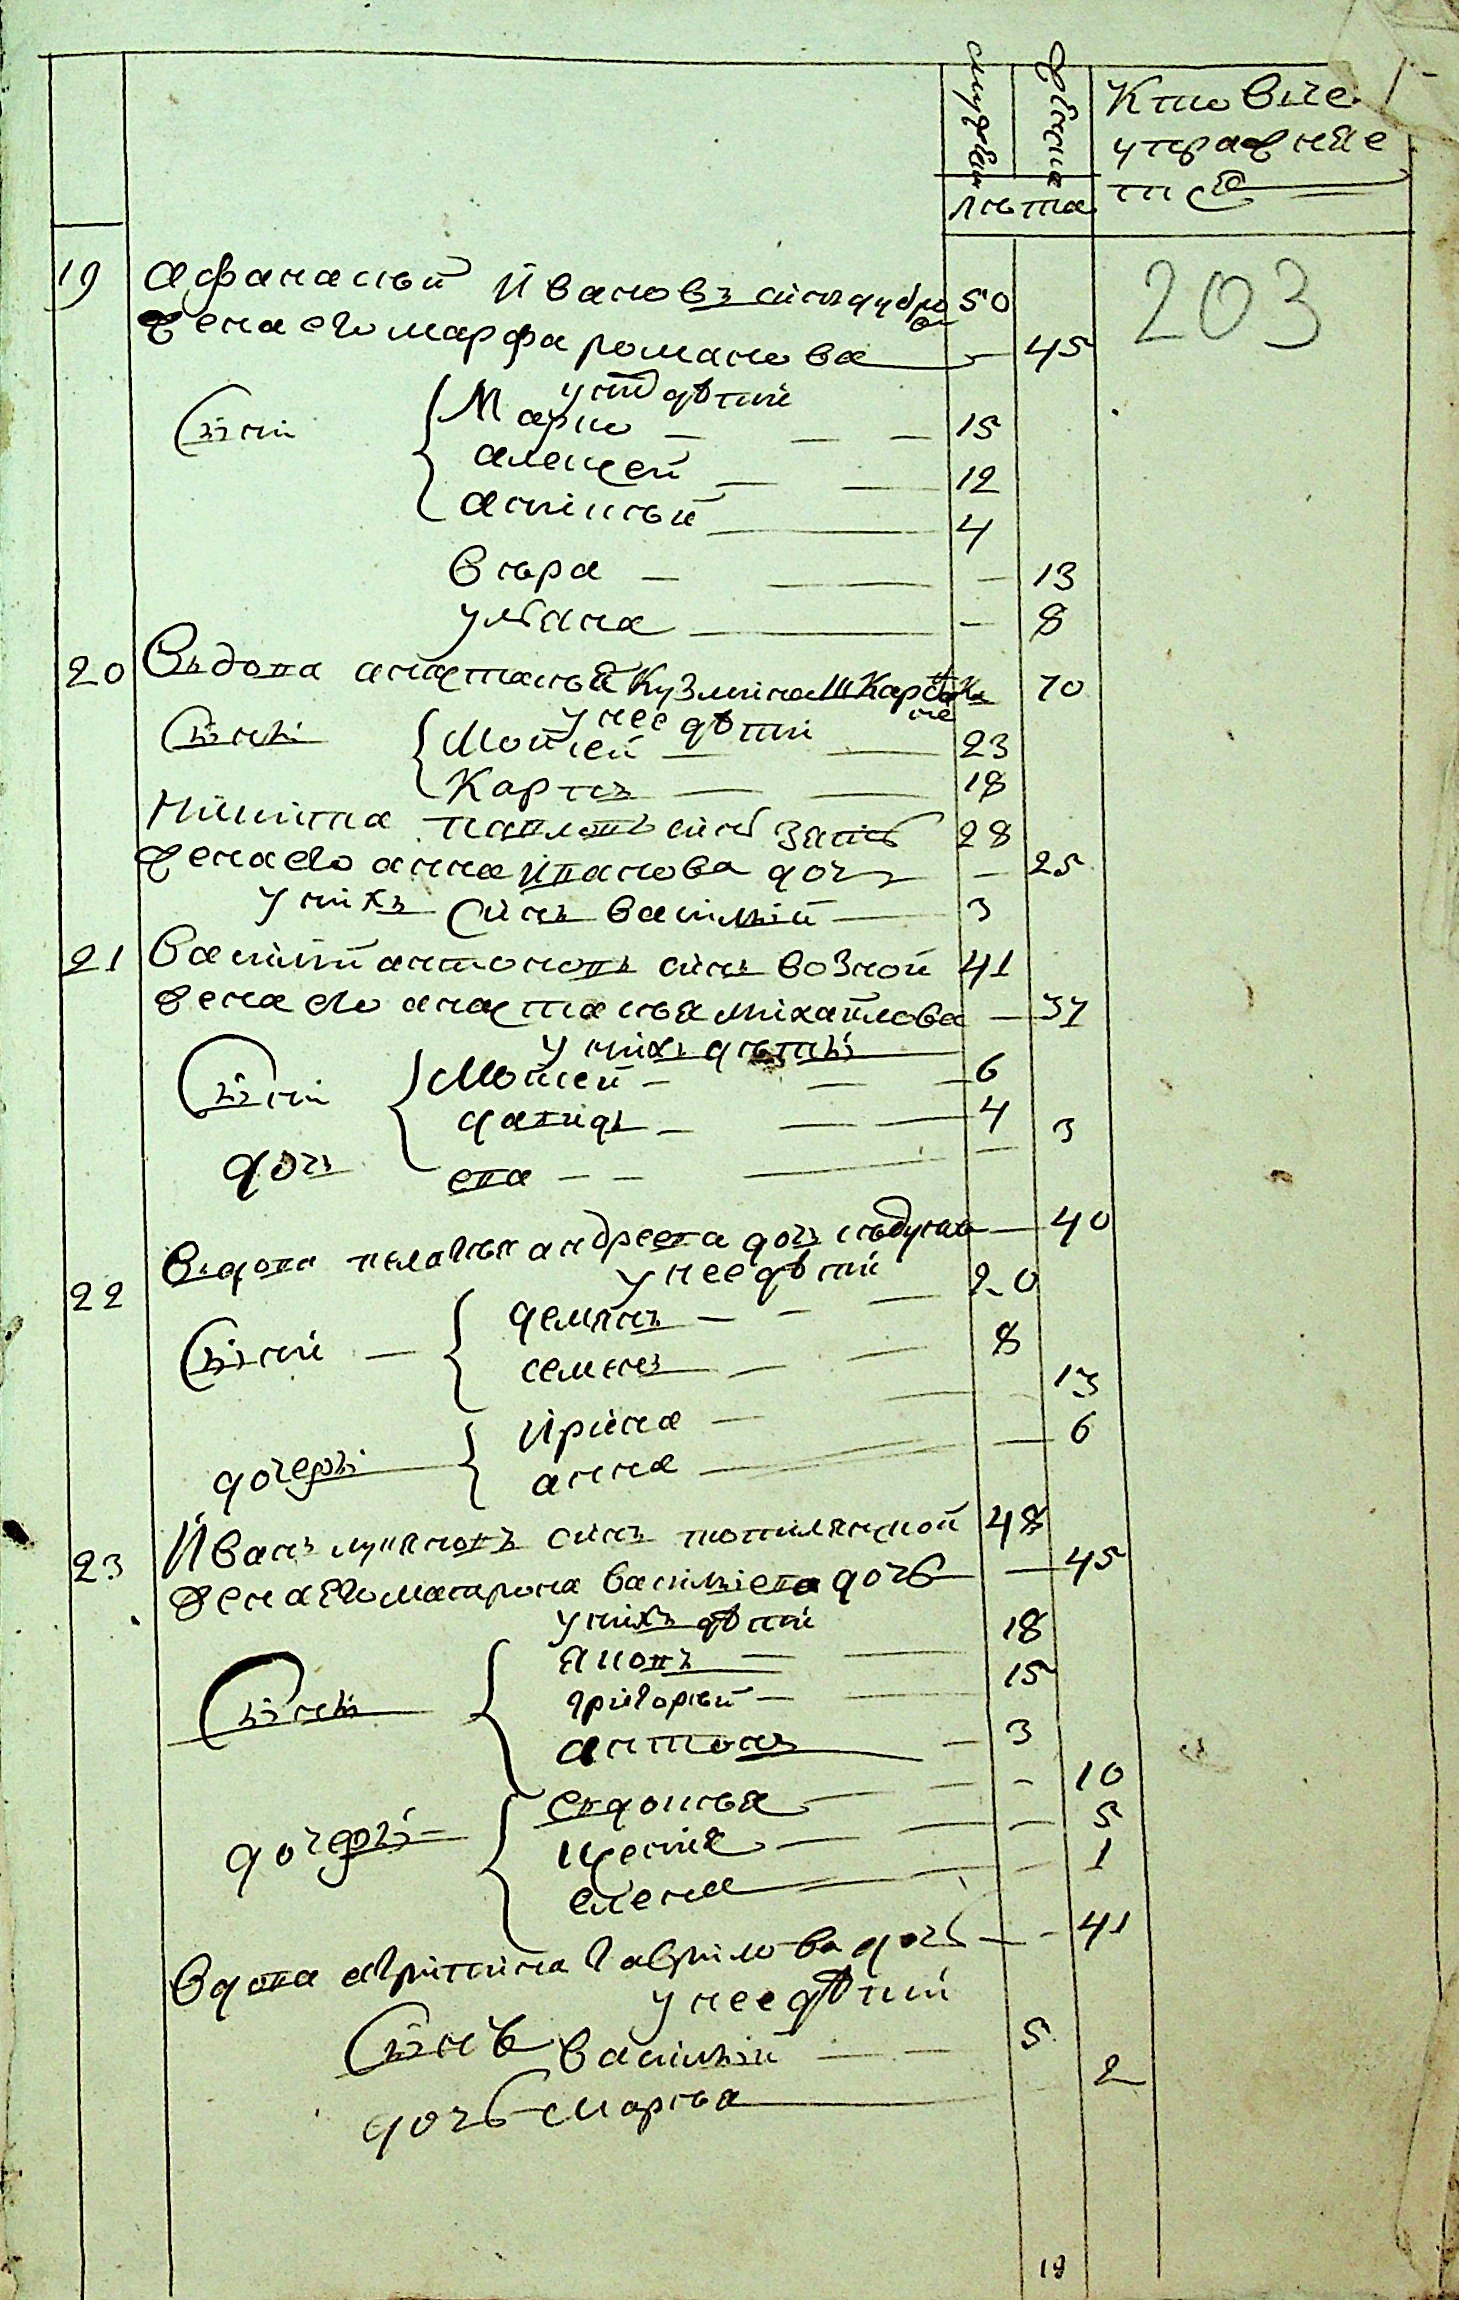 мужеска
женска
Кто в чем
упражняе
тся
лѣта
203
19 афанасѣй Ивановъ синъ дубро 50
ва
жена его марфа романова — 45
у нихъ дѣтий
Сини { Марко — 15
алексей — 12
астисѣй — 4
вѣра — 13
уляна — 8
20 Вдова анастасѣя Кузмина 70
у нее дѣтий
Сини { Мойсей — 23
Карпъ — 18
Никита павловъ синъ зять 28
жена его анна иванова дочъ — 25
у нихъ Синъ василий — 3
21 Василий антоновъ синъ возной 41
жена его анастасѣя михайлова — 37
у нихъ дѣтий
Сини { Мойсей — 6
давидъ — 4
дочъ ева — 3
Вдова пелагѣя андреева дочъ — 40
у нее дѣтий
22 Сини { демянъ — 20
семенъ — 8
дочери { Ирина — 13
анна — 6
23 Иванъ лукяновъ синъ 48
жена его матрона василиева дочь — 45
у нихъ дѣтий
Сини { Яковъ — 18
григорѣй — 15
антонъ — 3
дочери { евдокѣя — 10
ксения — 5
елена — 1
вдова агрипина гаврилова дочь — 41
у нее дѣтий
Синъ василий — 5
дочь марѣа — 2
19